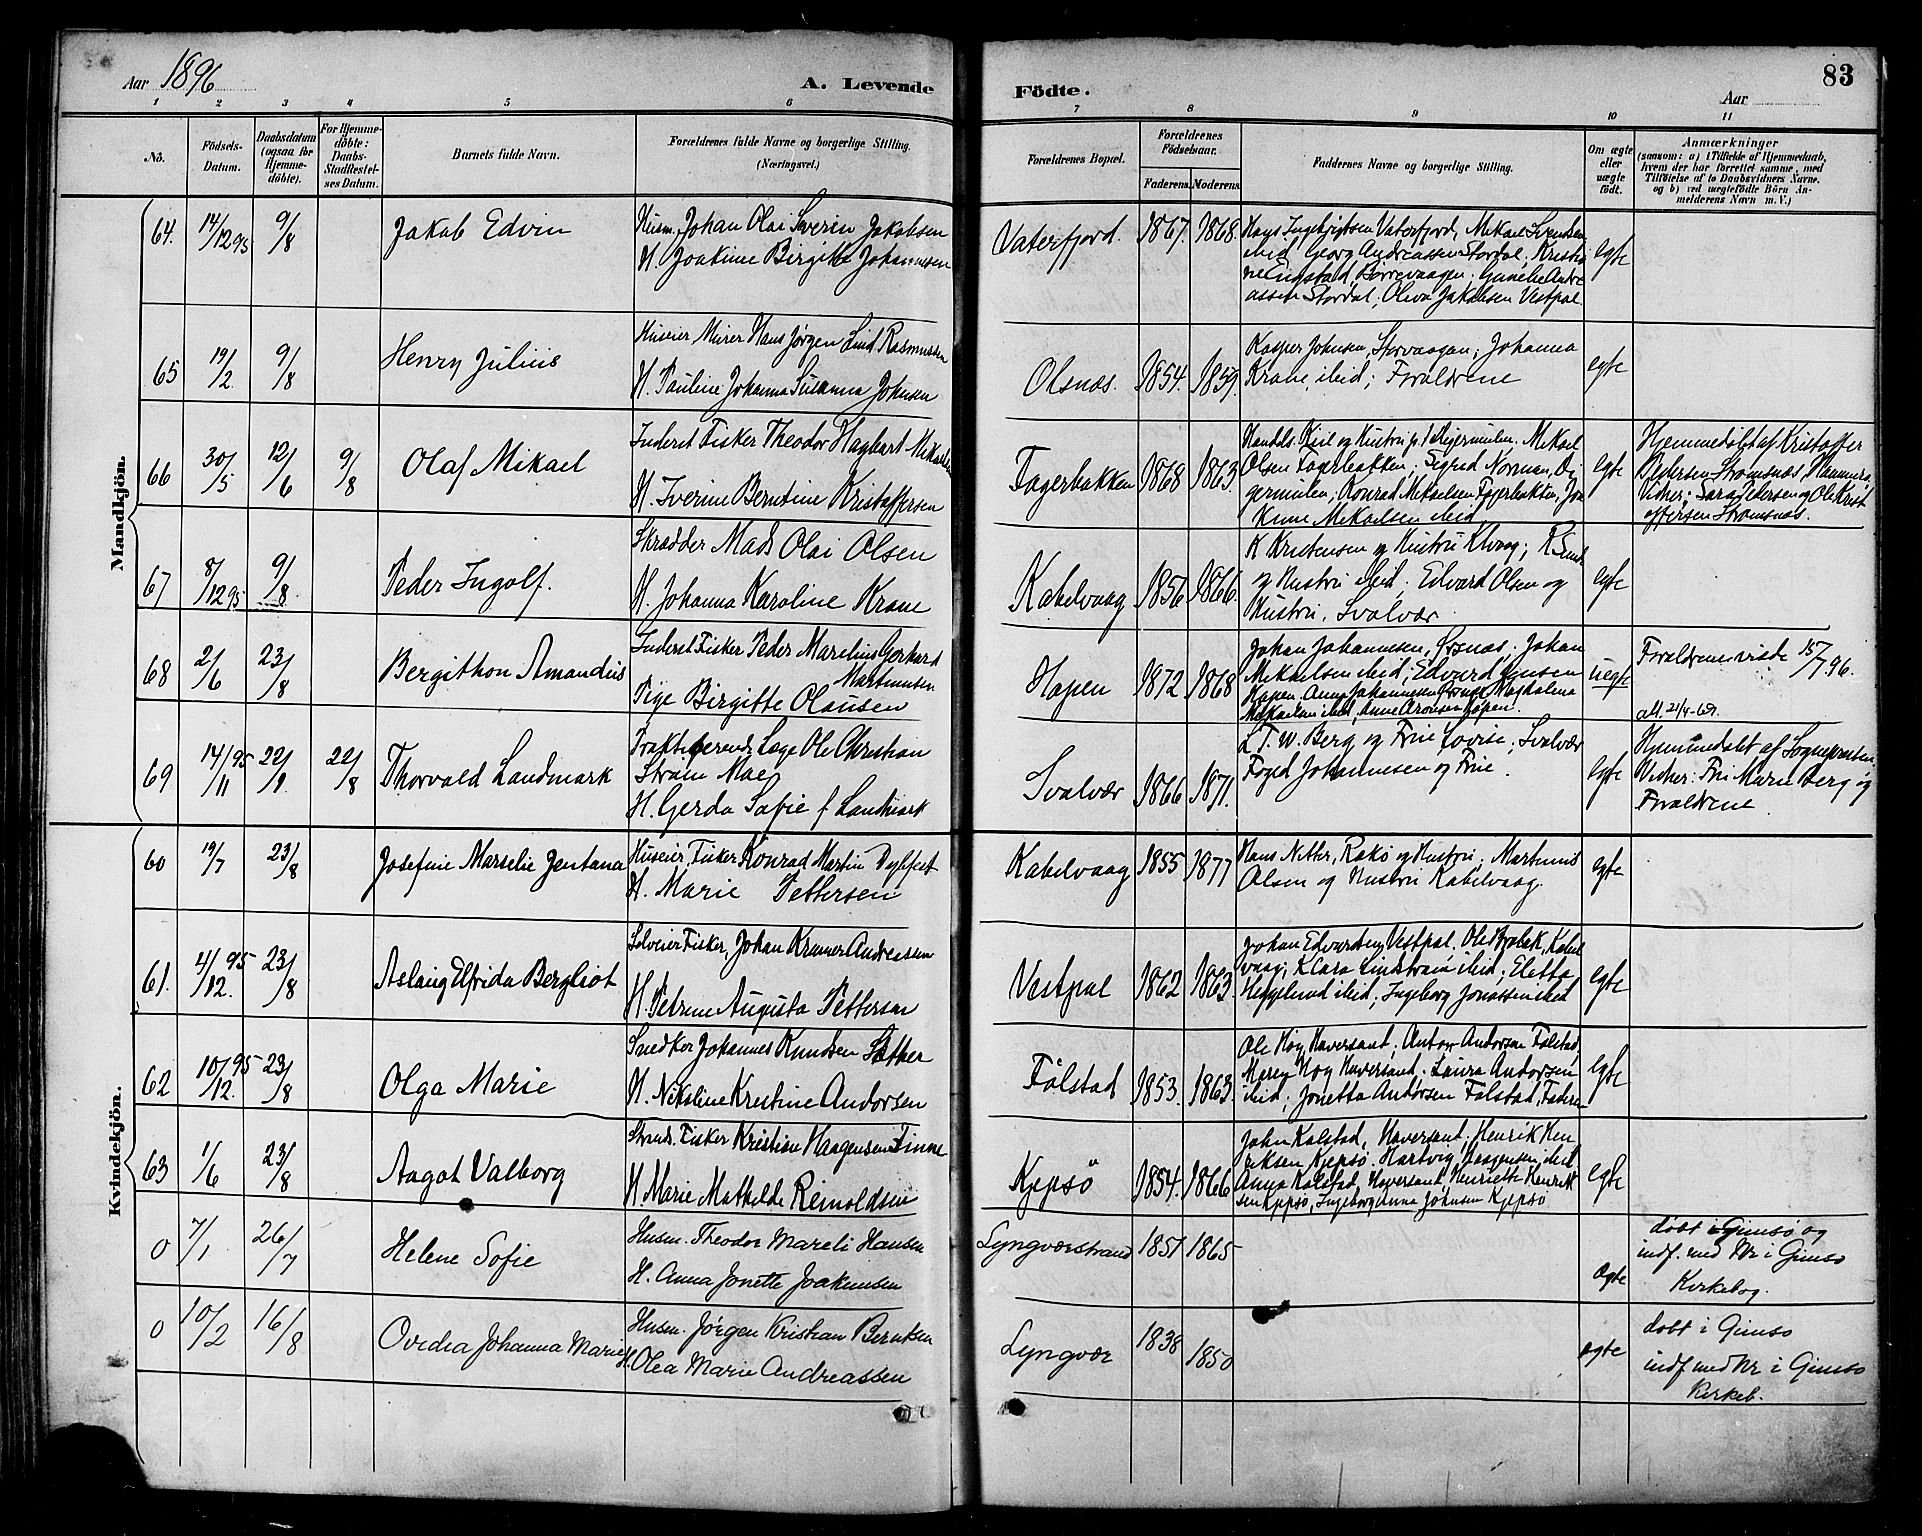 Aar 1896
A. Levende
Födte.
83
Aar
1 2 3 4 5 6 7 8 9 10 11
No.
Födsels-
Datum.
Daabsdatum
(ogsaa for
Hjemme-
döbte).
For Hjemme-
döbte:
Daabs-
Stadfæstel-
ses Datum.
Barnets fulde Navn.
Forældrenes fulde Navne og borgerlige Stilling.
(Næringsvei.)
Forældrenes Bopæl.
Forældrenes
Födselsaar.
Faderens. Moderens.
Faddernes Navne og borgerlige Stilling.
Om ægte
eller
uægte
födt.
Anmærkninger
(saasom: a) i Tilfælde af Hjemmedaab,
hvem der har forrettet samme, med
Tilföielse af to Daabsvidners Navne.
og b) ved uægtefödte Börn An-
melderens Navn m. V.)
Mandkjön.
64. 14/12 95 9/8 Jakob Edvin
Husm. Johan Olai Severin Jakobsen
H. Joakime Birgitte Johannesen
Vaterfjord. 1867. 1868.
Hans Ingebrigtsen Vaterfjord, Mikael Svendsen
ibid, Georg Andreassen Stordal, Kristi
ne Engstad, Børrevaagen; Gunelie Andre
assen Stordal; Oliva Jakobsen Vestpol
egte
65 19/2. 9/8 Henry Julius
Huseier Murer Hans Jørgen Lind Rasmussen
H. Pauline Johanna Susanna Johnsen
Olsnæs. 1854. 1859.
Kasper Johnsen, Storvaagan; Johanna
Krane, ibid; Forældrene
egte
66 30/5 12/6 9/8 Olaf Mikael
Inderst Fisker Theodor Hagbart Mikaelsen
H. Iverine Berntine Kristoffersen
Fagerbakken 1868 1863.
Handels. Kiil og Hustru, Digermulen. Mikael
Olsen Fagerbakken; Sigrud Norman, Di
germulen; Konrad Mikaelsen Fagerbakken, Jo
Kime Mikaelsen ibid
egte
Hjemmedøbt af Kristoffer
Pedersen Strømsnæs,
Vidner: Sara Pedersen og Ole Krist
offersen Strømsnæs.
67 8/12 95 9/8 Peder Ingolf.
Skrædder Mads Olai Olsen
H. Johanna Karoline Krane
Kabelvaag 1856 1866.
K Kristensen og Hustru Khvaag;
og Hustru ibid; Edvard Olsen og
Hustru, Svolvær.
egte
68 2/6 23/8 Bergithon Amandus
Inderst Fisker Peder Marelius Gerhard
Martinusen
Pige Birgitte Olausen
Hopen 1872 1868
Johan Johannesen, Ørsnæs; Johan
Mikaelsen ibid; Edvard Jensen
Hopen. Anna Johannesen Ørsnæs Magdalena
Mikaelsen ibid, Anne Aronsen Hopen.
uegte
Forældrene viede 15/7 96.
att. 21/4-69.
69 14/11 95 22/1. 22/8 Thorvald Landmark
Praktiserende Læge Ole Christian
Strøm Moe
H. Gerda Sofie f Landmark
Svolvær 1866 1871.
L. T. W. Berg og Frue Lovise; Svolvær
Foged Johannesen og Frue.
egte
Hjemmedøbt af Sognepresten.
Vidner: Fru Marie Berg og
Forældrene
Kvindekjön.
60 19/7 23/8 Josefine Marselie Jentana
Huseier, Fisker Konrad Martin Dybfest
H. Marie Pettersen
Kabelvaag 1855 1877
Hans Netter, Rækø og Hustru; Martinus
Olsen og Hustru Kabelvaag.
egte
61. 4/12. 95 23/8 Aslaug Elfrida Bergliot
Selveier Fisker, Johan Kremer Andreassen
H. Petrine Augusta Pettersen
Vestpol 1862 1863.
Johan Edvardsen Vestpol. Ole Kabel
vaag; Klara Lindstrøm ibid; Eletta
Heggelund ibid; Ingeborg Jonassen ibid
egte
62 10/12. 95 23/8 Olga Marie
Snedker Johannes Knudsen Sæther
H. Nikoline Kristine Andorsen
Følstad 1853. 1863.
Ole Høg Haversand; Anton Andorsen Følstad
Maren Høg Haversand. Laura Andorsen
ibid; Jonetta Andorsen Følstad, Faderen
egte
63 1/6 23/8 Aagot Valborg
Strands. Fisker Kristian Haagensen Finne
H. Marie Mathilde Reinoldsen
Kjepsö 1854. 1866
John Kalstad, Haversand; Henrik Hen
riksen Kjepsø. Hartvig Haagensen ibid.
Anna Kalstad, Haversand, Henriette Henrik
sen Kjepsø, Ingeborg Anna Johnsen Kjepsø
egte
0 7/1 26/7 Helene Sofie
Husm. Theodor Mareli Hansen
H. Anna Jonette Joakimsen
Lyngværstrand 1851 1865
ægte
døbt i Gimsø og
indf. med Nr i Gimsø
Kirkebog.
0 10/2 16/8 Ovedia Johanna Marie
Husm. Jørgen Kristian Berntsen
H. Olea Marie Andreassen
Lyngvær 1838 1850
ægte
døbt i Gimsø
indf med Nr. i Gimsø
Kirkeb.